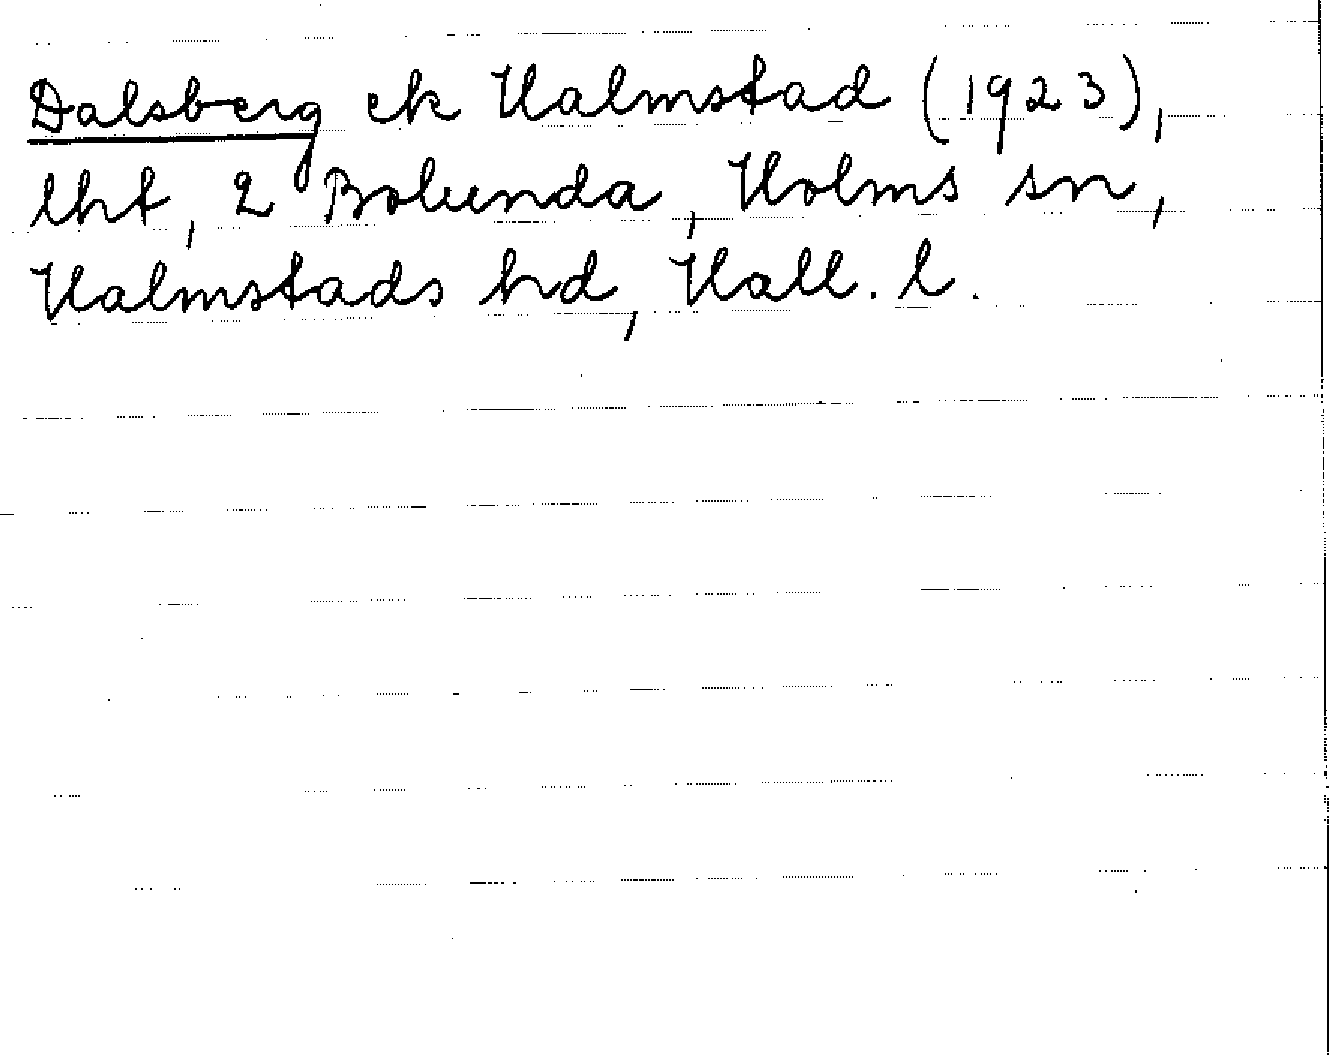 Dalsberg ek Halmstad (1923),
lht, 2 Bolunda, Holms sn,
Halmstads hd, Hall. l.